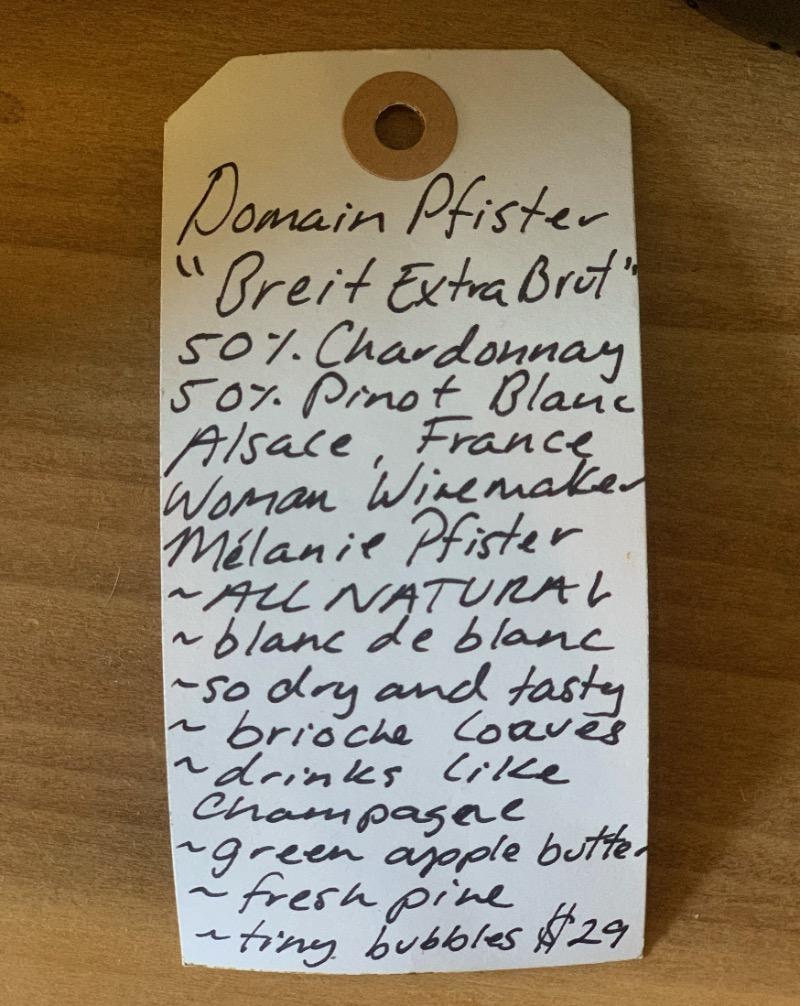 Domain Pfister
"Breit Extra Brut"
50% Chardonnay
50% Pinot Blanc
Alsace, France
Woman Winemaker
Mélanie Pfister
~ALL NATURAL
~blanc de blanc
~so dry and tasty
~ brioche loaves
~drinks like
Champagne
~green apple butter
~ fresh pine
~tiny bubbles $29